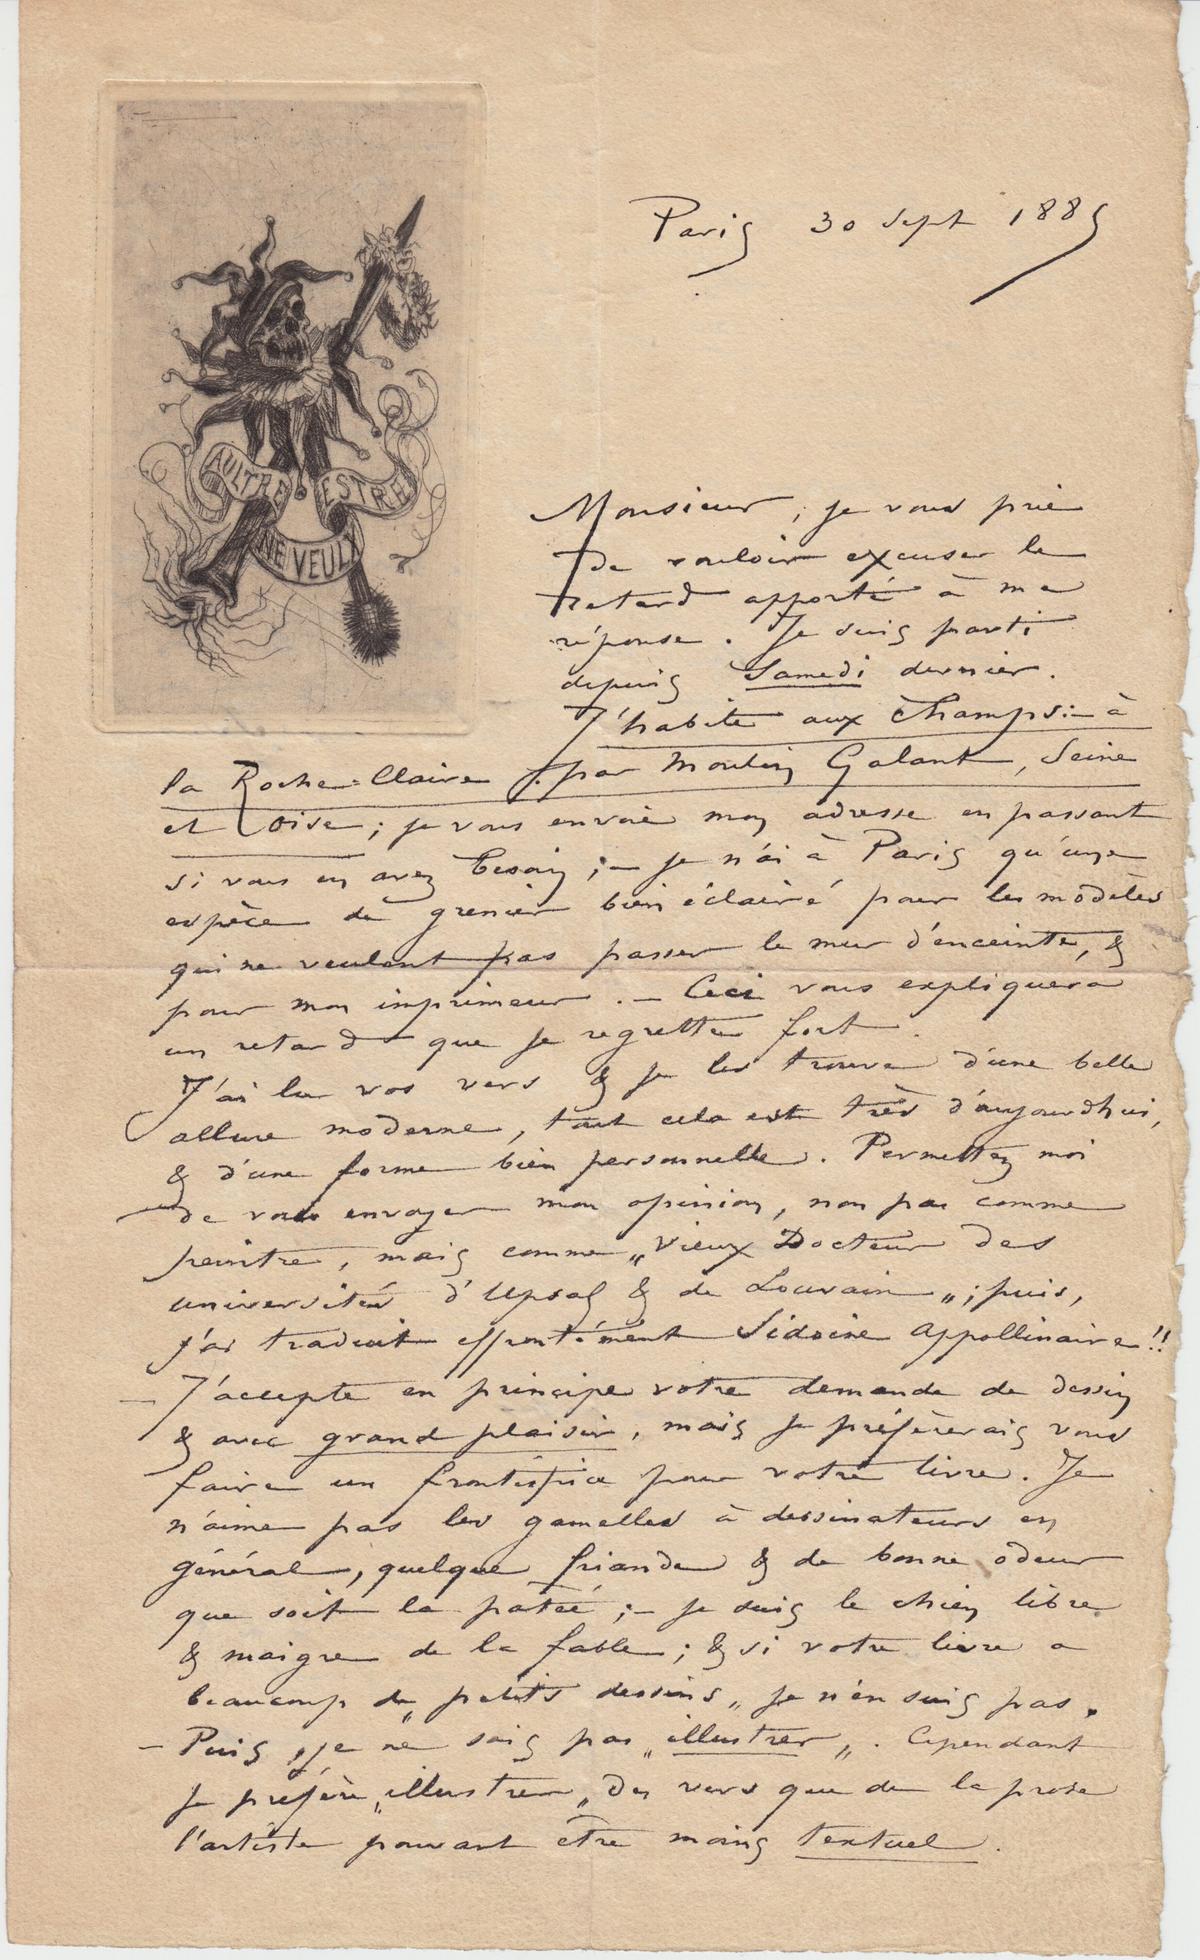 Paris 30 Sept 1885
AULTRE
NE VEULX
ESTRE
Monsieur, je vous prie
de vouloir excuser le
retard apporté à ma
réponse. Je suis parti
depuis Samedi dernier.
J'habite aux champs:– à
la Roche-Claire par Moulin Galant, Seine
et Oise; je vous envoie mon adresse en passant
si vous en avez besoin;– je n'ai à Paris qu'une
espèce de grenier bien éclairé pour les modèles
qui ne veulent pas passer le mur d'enceinte, &
pour mon imprimeur. – Ceci vous expliquera
un retard que je regrette fort.
J'ai lu vos vers & je les trouve d'une belle
allure moderne, tout cela est très d'aujourdhui,
& d'une forme bien personnelle. Permettez moi
de vous envoyer mon opinion, non pas comme
peintre, mais comme „vieux Docteur des
universités d'Upsal & de Louvain„; puis,
j'ai traduit effrontément Sidoine Appollinaire!!
– J'accepte en principe votre demande de dessin
& avec grand plaisir, mais je préfèrerais vous
faire un frontispice pour votre livre. Je
n'aime pas les gamelles à dessinateurs en
général, quelque friande & de bonne odeur
que soit la patée;– je suis le chien libre
& maigre de la fable; & si votre livre a
beaucoup de „petits dessins„ je n'en suis pas.
– Puis, je ne sais pas „illustrer„. Cependant
je préfère „illustrer„ des vers que de la prose
l'artiste pouvant être moins textuel.